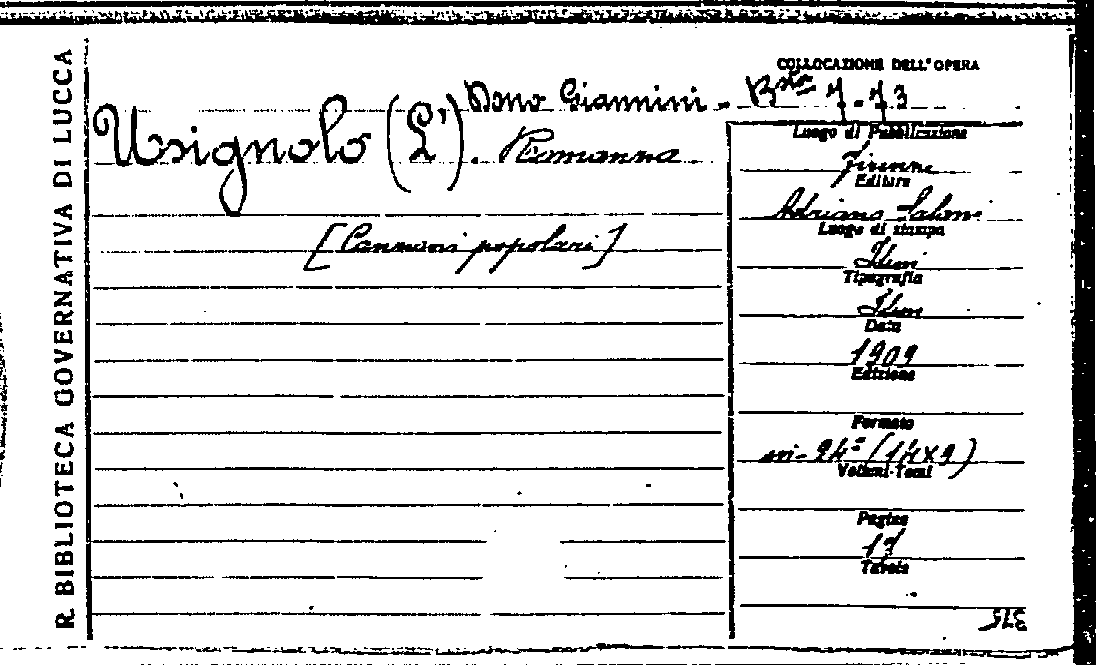 R. BIBLIOTECA GOVERNATIVA DI LUCCA
COLLOCAZIONE DELL'OPERA
Dono Giannini - Bta 7.73
Usignolo (L'). Romanza
[Canzoni popolari]
Luogo di Pubblicazione
Firenze
Editore
Adriano Salani
Luogo di stampa
Idem
Tipografia
Idem
Data
1909
Edizione
Formato
in-24º (14X9)
Volumi-Tomi
Pagine
17
Tavole
375